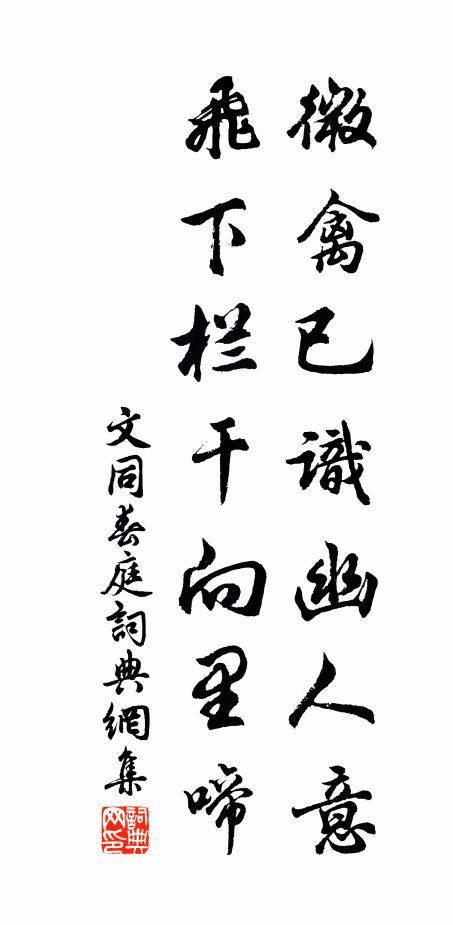 微禽已識幽人意
飛下栏干向里啼
文同春庭詞典網集
詞典网印